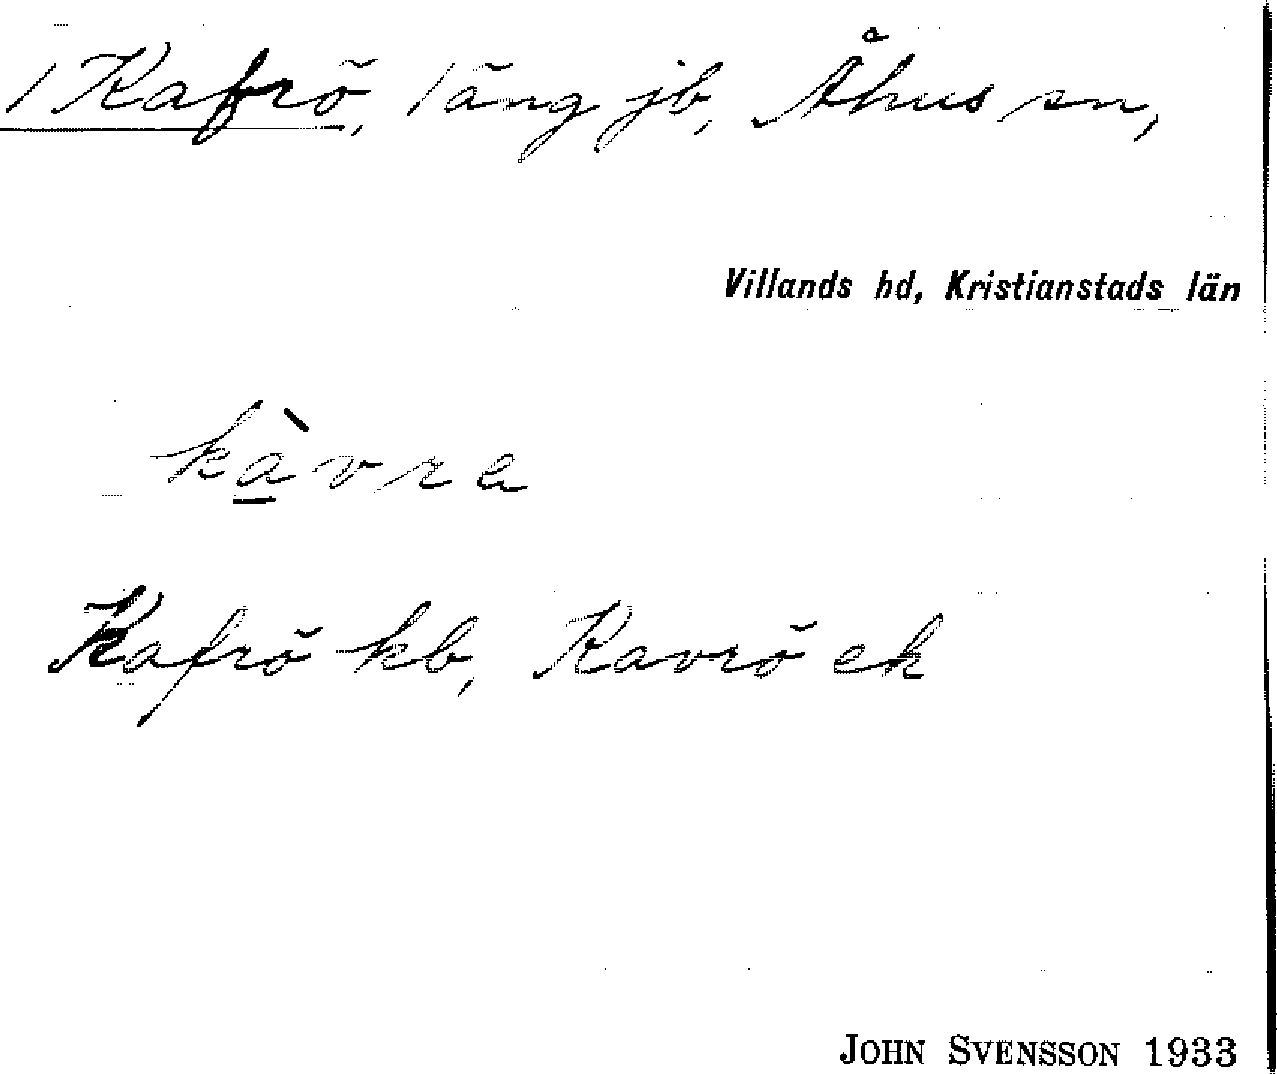 /Kafrö, /äng jb, Åhus sn,
Villands hd, Kristianstads län
kàvra
Kafrö kb, Kavrö ek
JOHN SVENSSON 1933